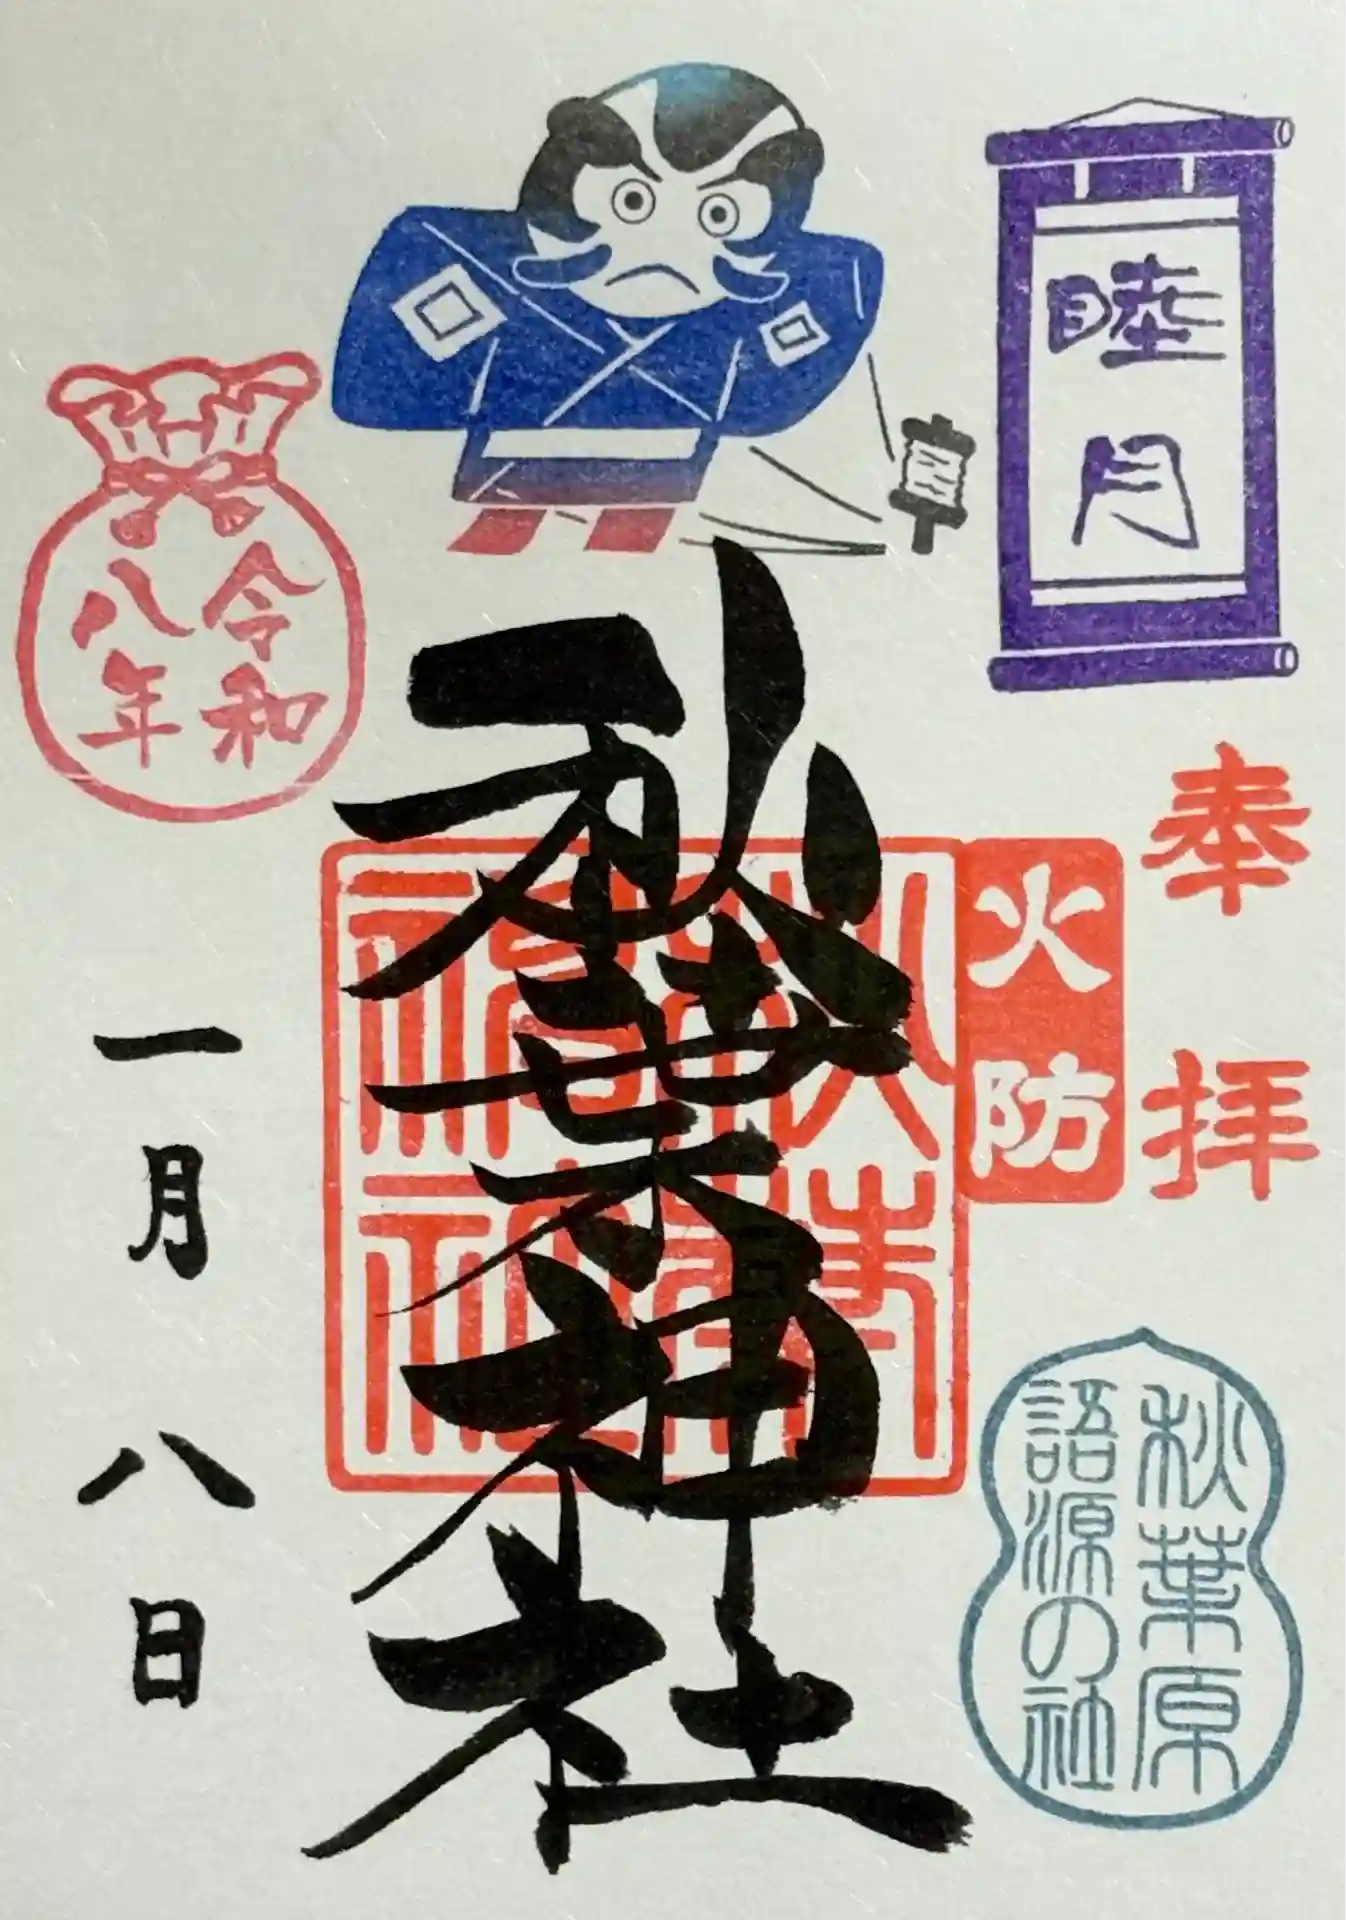 睦月
奉拝
火防
秋葉原
語源の社
秋葉神社
令和
八年
一月八日